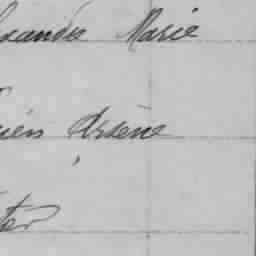 xandre Marie
cien Arsène
tor